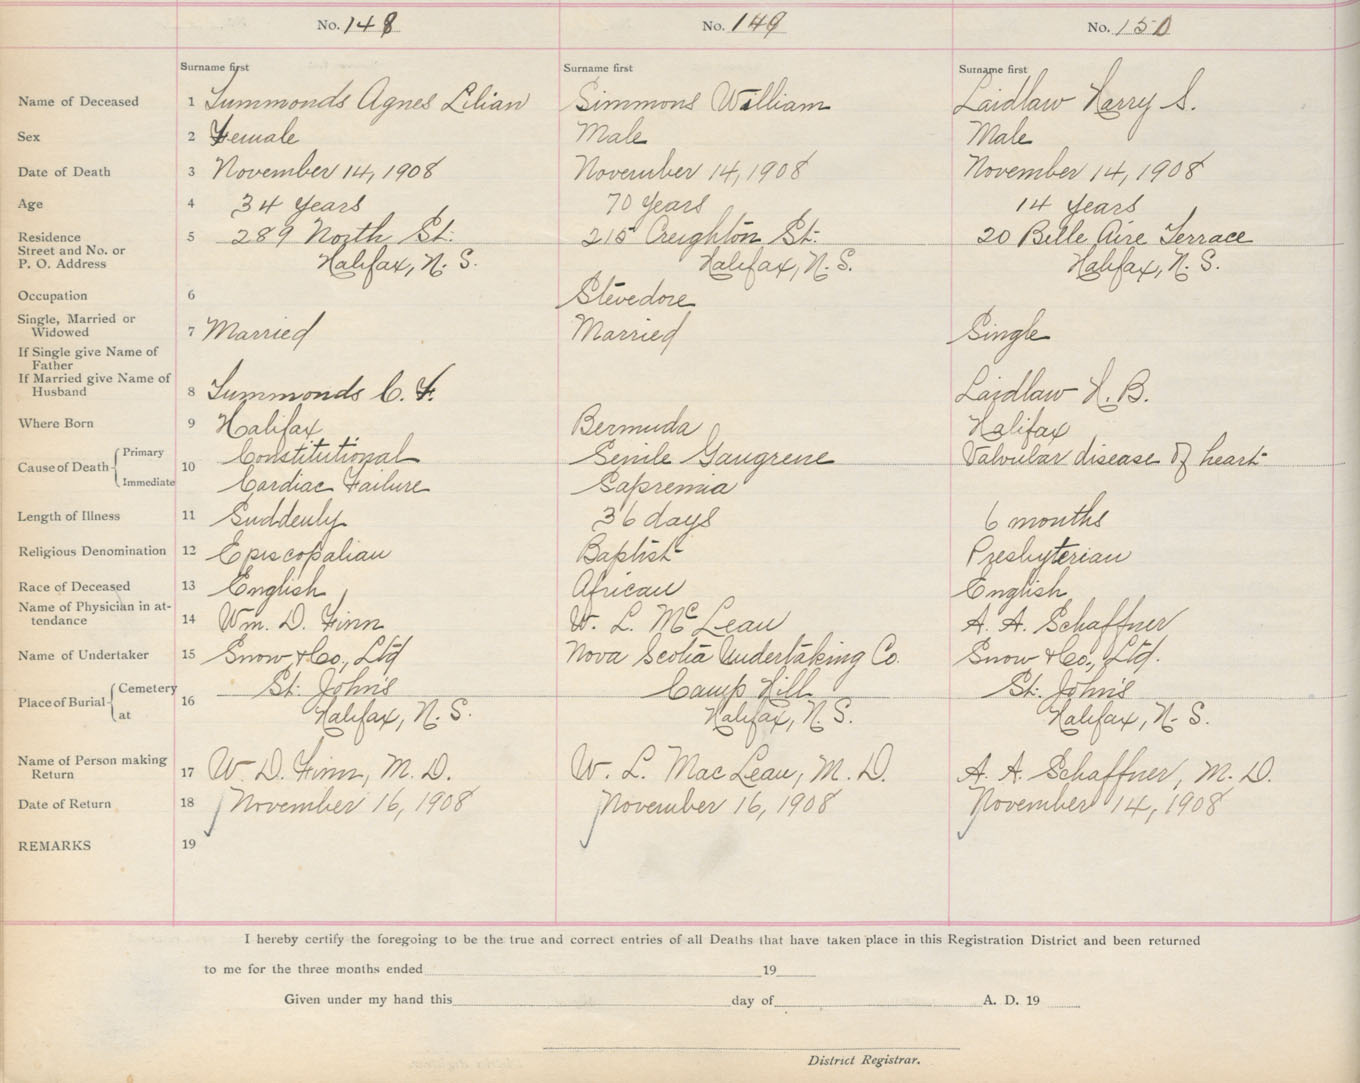 No. 148 No. 149 No. 150
Surname first Surname first Surname first
Name of Deceased 1 Summonds Agnes Lilian Simmons William Laidlaw Harry S.
Sex 2 Female Male Male
Date of Death 3 November 14, 1908 November 14, 1908 November 14, 1908
Age 4 34 years 70 years 14 years
Residence 5 289 North St. 215 Creighton St. 20 Belle Aire Terrace
Street and No. or
P. O. Address Halifax, N. S. Halifax, N. S. Halifax, N. S.
Occupation 6 Stevedore
Single, Married or
Widowed 7 Married Married Single
If Single give Name of
Father
If Married give Name of
Husband 8 Summonds C. F. Laidlaw H. B.
Where Born 9 Halifax Bermuda Halifax
Cause of Death Primary 10 Constitutional Senile Gangrene Valvular disease of heart
Immediate Cardiac Failure Sapremia
Length of Illness 11 Suddenly 36 days 6 months
Religious Denomination 12 Episcopalian Baptist Presbyterian
Race of Deceased 13 English African English
Name of Physician in at-
tendance 14 Wm. D. Finn W. L. McLean A. A. Schaffner
Name of Undertaker 15 Snow & Co., Ltd Nova Scotia Undertaking Co. Snow & Co., Ltd.
Place of Burial Cemetery 16 St. John's Camp Hill St. John's
at Halifax, N. S. Halifax, N. S. Halifax, N. S.
Name of Person making
Return 17 W. D. Finn, M. D. W. L. MacLean, M. D. A. A. Schaffner, M. D.
Date of Return 18 November 16, 1908 November 16, 1908 November 14, 1908
REMARKS 19
I hereby certify the foregoing to be the true and correct entries of all Deaths that have taken place in this Registration District and been returned
to me for the three months ended 19
Given under my hand this day of A. D. 19
District Registrar.